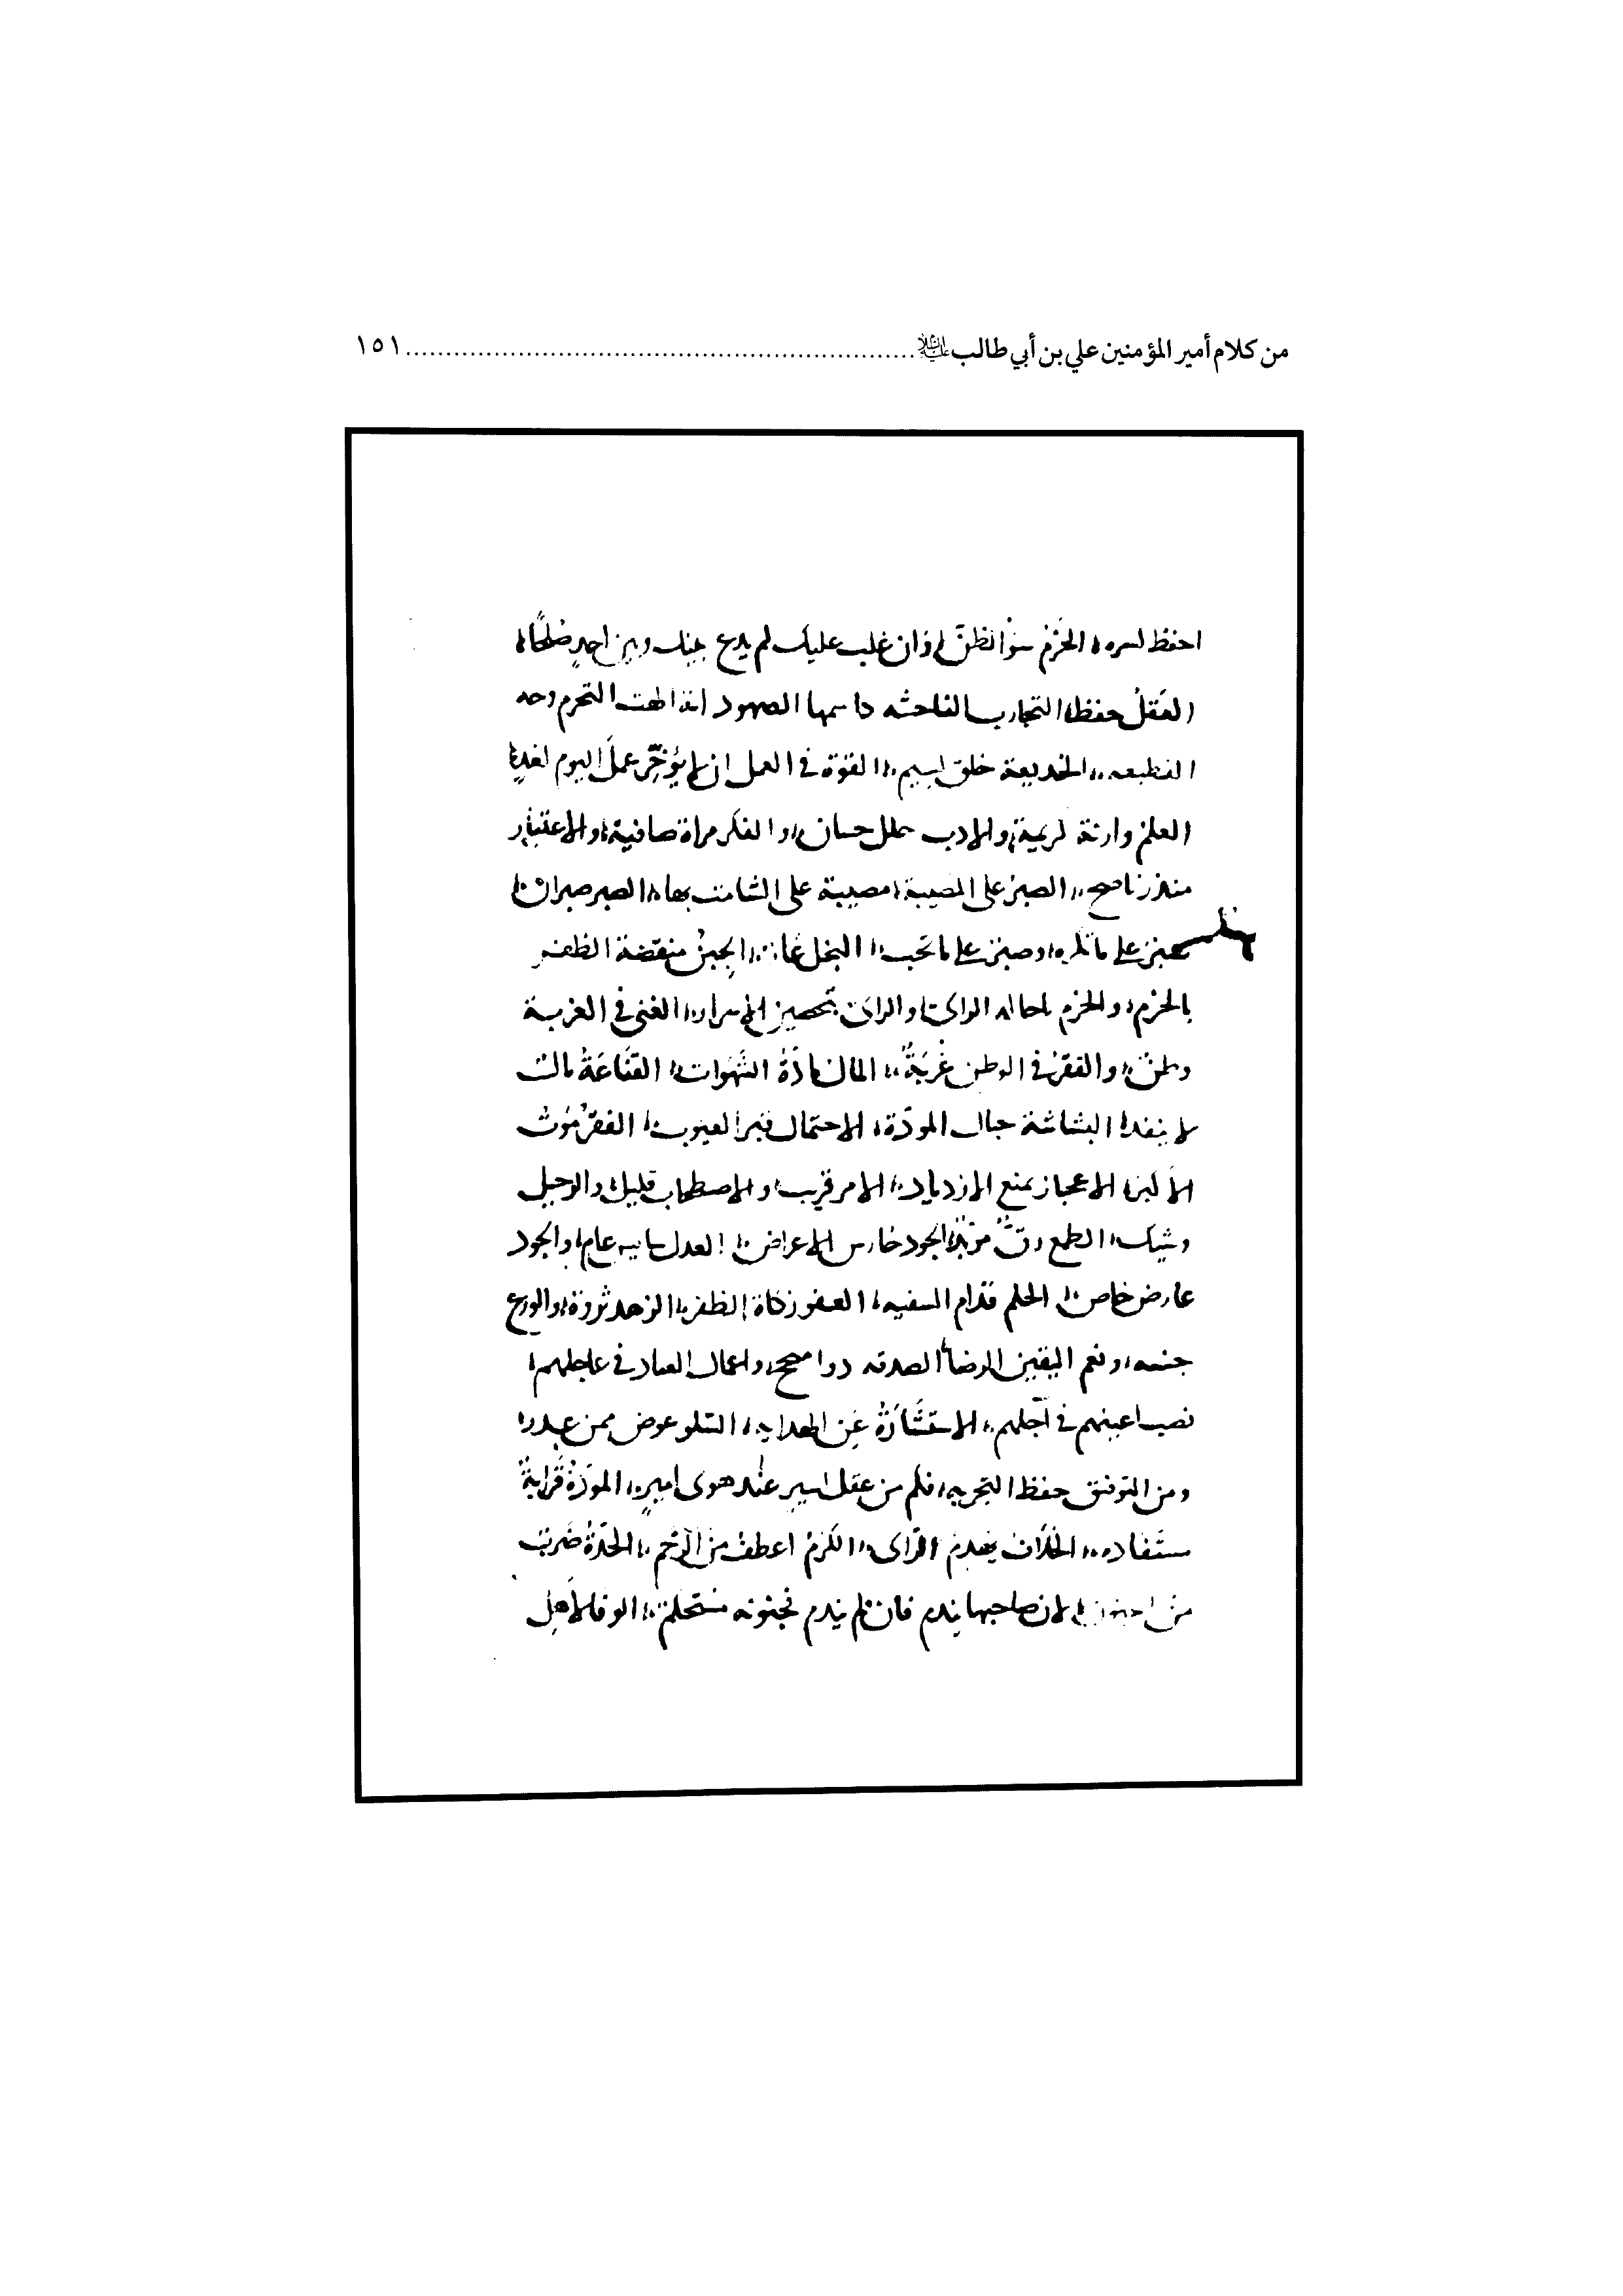 من كلام أمير المؤمنين علي بن أبي طالب ............ ١٥١
احفظ لسره الحَزْمُ سوُ الظنّ فان غلب عليك لم يدع بينك وبين احدٍ صُلحًا
العَقلُ حفظ التجارب الفاحشه كاسمها
الخديعة خلق لييم القوة في العمل ان لا يُؤخّر عملَ اليوم لغدٍ
العلمُ وارثة كريمة والادب حلل حسان والفكر مراة صافية والاعتبار
منذر ناصح الصبرُ على المصيبة مصيبة على الشامت بها الصبر صبران
صبرٌ على ما تكره وصبرٌ على ما تحب البخل عار الجبنُ منقصة الظفر
بالحزم والحزم باجالة الراى والراى بتحصين الاسرار الغنى في الغربة
وطنٌ والفقرُ في الوطن غُربَةٌ المال مادّةُ الشَّهَوات القنَاعَةُ مالٌ
لا ينفد البشاشة حبال المودّة الاحتمال قبر العيوب الفقرُ مَوتٌ
الأكبر الاعجاز يمنع الازدياد الامر قريب والاصطحاب قليل والرحيل
وشيك الطمع رقٌّ مؤبّدٌ الجود حارس الاعراض العدل سايس عام والجود
عارض خاص الحلم فدام السفيه العفو زكاة الظفر الزهد ثروة والورع
جنه ونعم القرين الرضا الصدقه دوا منجح واعمال العباد في عاجلهم
نصب اعينهم في آجلهم الاستشارَةُ عَين الهداية السّلو عوض ممن غدر
ومن التوفيق حفظ التجربه فكم من عقل اسيرٍ عند هوى اميرٍ المودّةُ قَرابةٌ
مستَفاده الخلاف يهدم الرّاى الكَرمُ اعطف من الرّحم الحِدّةُ ضَربٌ
من الجنون لان صاحبها يندم فان لم يندم فجنونه مستحكم الوفا لأهل